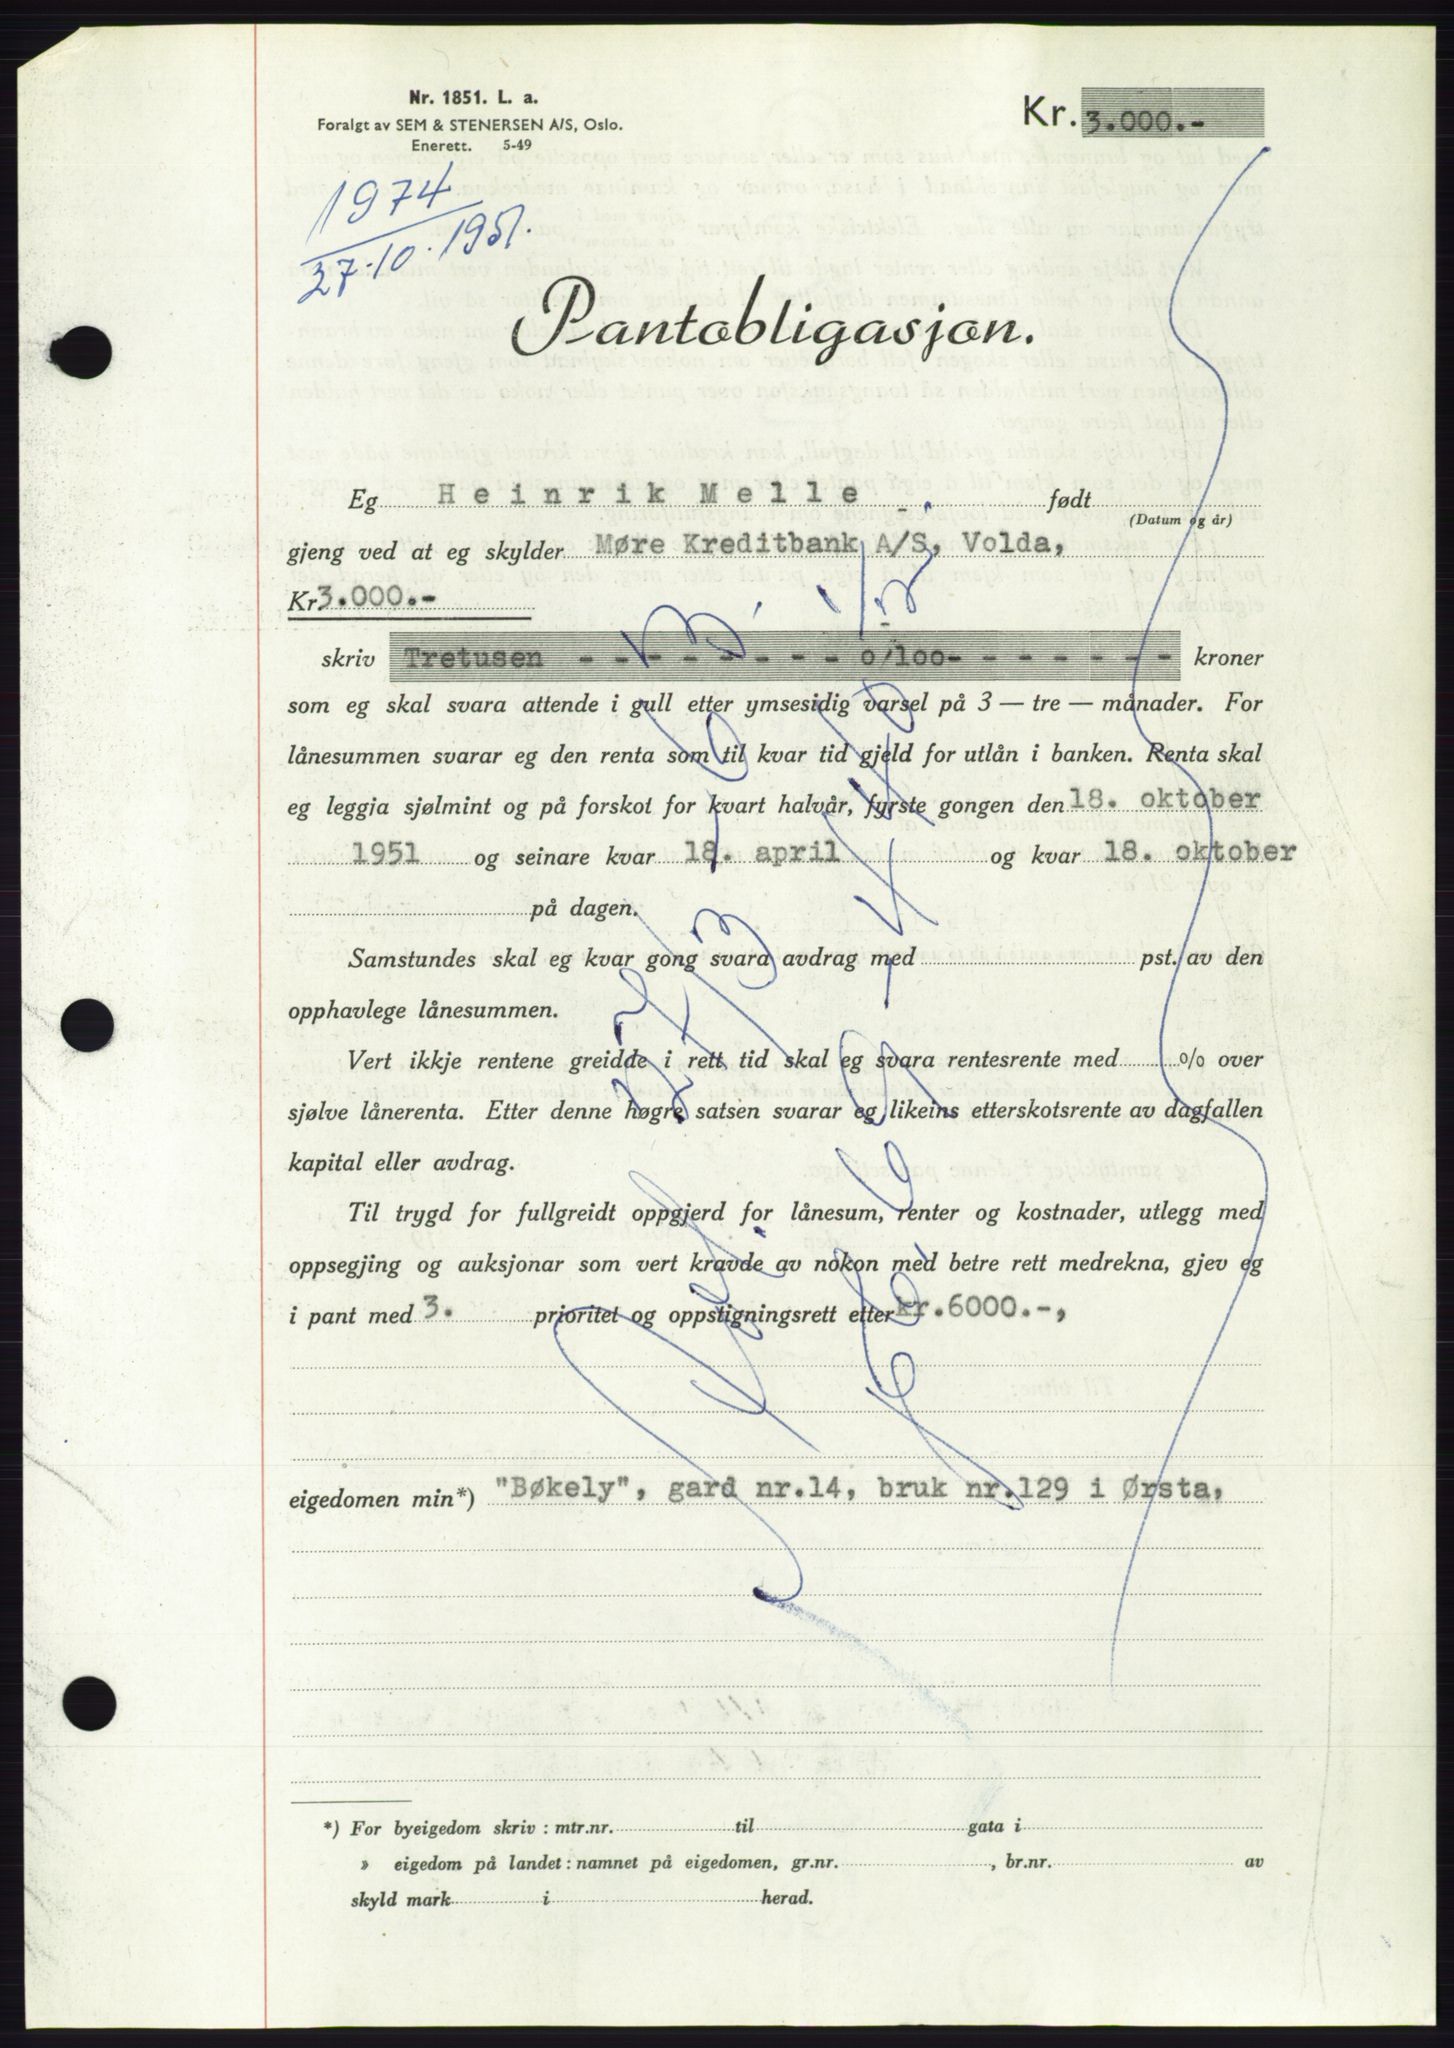 Nr. 1851. L. a.
Foralgt av SEM & STENERSEN A/S, Oslo.
Enerett. 5-49
Kr. 3.000.-
1974
27.10.1951.
Pantobligasjon.
Eg Heinrik Melle født
(Datum og år)
gjeng ved at eg skylder Møre Kreditbank A/S, Volda,
Kr 3.000.-
skriv Tretusen - - - - - - - - 0/100- - - - - - - kroner
som eg skal svara attende i gull etter ymsesidig varsel på 3 — tre — månader. For
lånesummen svarar eg den renta som til kvar tid gjeld for utlån i banken. Renta skal
eg leggja sjølmint og på forskot for kvart halvår, fyrste gongen den 18. oktober
1951 og seinare kvar 18. april og kvar 18. oktober
på dagen.
Samstundes skal eg kvar gong svara avdrag med pst. av den
opphavlege lånesummen.
Vert ikkje rentene greidde i rett tid skal eg svara rentesrente med % over
sjølve lånerenta. Etter denne høgre satsen svarar eg likeins etterskotsrente av dagfallen
kapital eller avdrag.
Til trygd for fullgreidt oppgjerd for lånesum, renter og kostnader, utlegg med
oppsegjing og auksjonar som vert kravde av nokon med betre rett medrekna, gjev eg
i pant med 3. prioritet og oppstigningsrett etter kr.6000.-,
eigedomen min*) "Bøkely", gard nr.14, bruk nr.129 i Ørsta,
*) For byeigedom skriv : mtr.nr. til gata i
» eigedom på landet : namnet på eigedomen, gr.nr. , br.nr. av
skyld mark i herad.